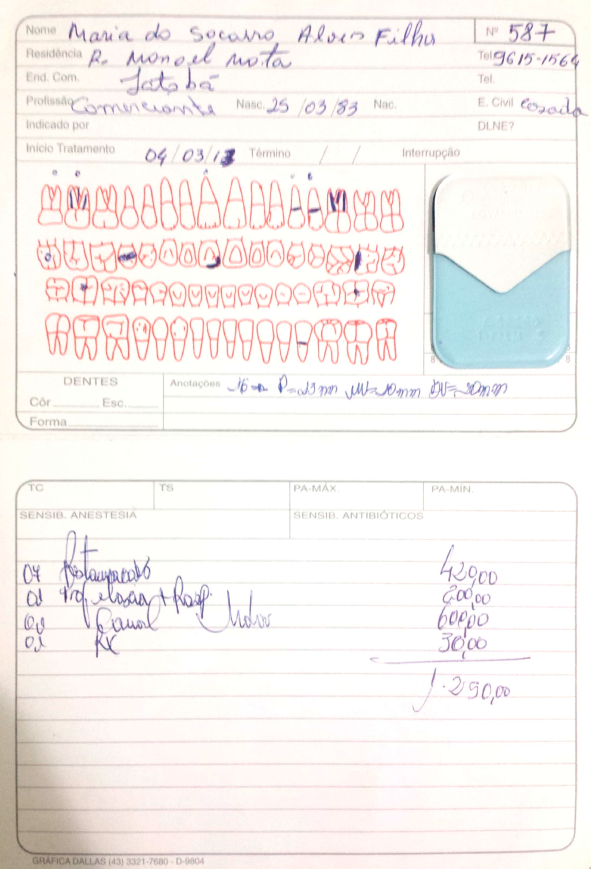 Nome Maria do Socorro Alves Filha Nº 587
Residência R. Manoel Mota Tel 9615-1564
End. Com. Jatobá Tel.
Profissão Comerciante Nasc. 25/03/83 Nac. E. Civil Casada
Indicado por DLNE?
Início Tratamento 04/03/13 Término / / Interrupção
DENTES Anotações 16 P=19mm MV=20mm DV=20mm
Côr Esc.
Forma
TC TS PA-MÁX. PA-MIN.
SENSIB. ANESTESIA SENSIB. ANTIBIÓTICOS
07 420,00
01 + Rasp. 200,00
01 Canal 600,00
01 RX 30,00
1.250,00
GRÁFICA DALLAS (43) 3321-7680 - D-9804